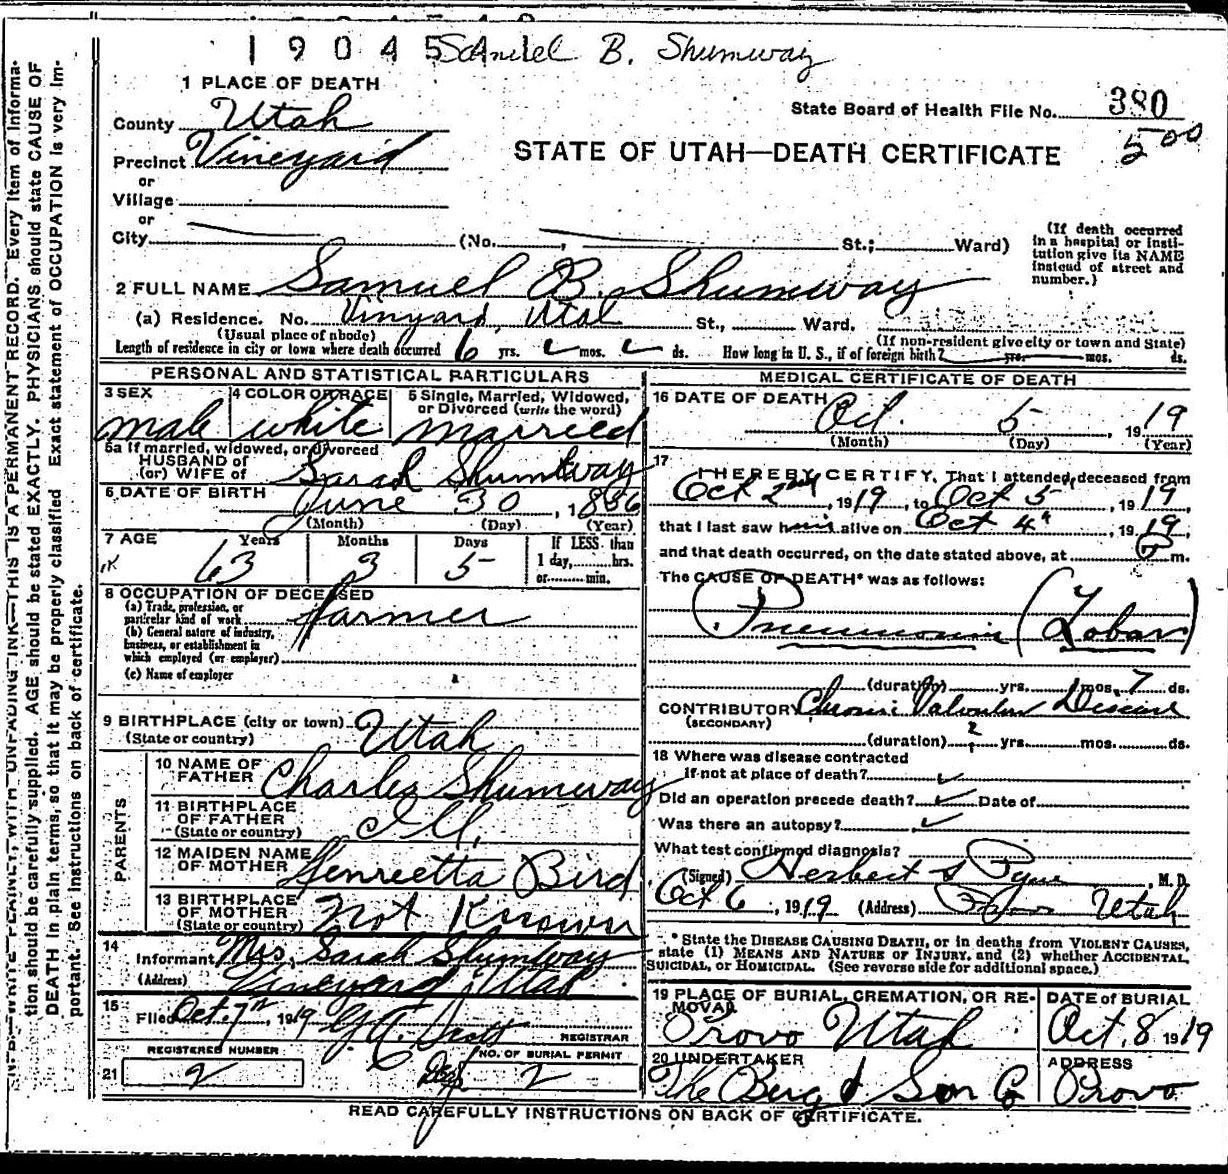 1904541 Samuel B. Shumway
1 PLACE OF DEATH
State Board of Health File No. 380
County Utah
5 00
Precinct Vineyard
STATE OF UTAH—DEATH CERTIFICATE
or
Village
or
City (No. , St.; Ward)
(If death occurred in a hospital or insti-
tution give its NAME
instead of street and
number.)
2 FULL NAME Samuel B. Shumway
(a) Residence. No. Vinyard, Utah St., Ward.
(Usual place of abode) (If non-resident give city or town and State)
Length of residence in city or town where death occurred 6 yrs. mos. ds. How long in U. S., if of foreign birth? yrs. mos. ds.
PERSONAL AND STATISTICAL PARTICULARS
3 SEX
male
4 COLOR OR RACE
white
5 Single, Married, Widowed,
or Divorced (write the word)
married
5a If married, widowed, or divorced
HUSBAND of
(or) WIFE of Sarah Shumway
6 DATE OF BIRTH June 30, 1856
(Month) (Day) (Year)
7 AGE Years Months Days If LESS than
63 3 5 1 day, hrs.
or min.
8 OCCUPATION OF DECEASED
(a) Trade, profession, or
particular kind of work Farmer
(b) General nature of industry,
business, or establishment in
which employed (or employer)
(c) Name of employer
9 BIRTHPLACE (city or town) Utah
(State or country)
PARENTS
10 NAME OF
FATHER Charles Shumway
11 BIRTHPLACE
OF FATHER Ill.
(State or country)
12 MAIDEN NAME
OF MOTHER Henrietta Bird
13 BIRTHPLACE
OF MOTHER Not Known
(State or country)
14
Informant Mrs. Sarah Shumway
(Address) Vineyard, Utah
15
Filed Oct. 7th, 1919
REGISTRAR
REGISTERED NUMBER NO. OF BURIAL PERMIT
21 2 2
MEDICAL CERTIFICATE OF DEATH
16 DATE OF DEATH Oct. 5, 1919
(Month) (Day) (Year)
17
I HEREBY CERTIFY, That I attended deceased from
Oct 2nd, 1919, to Oct 5, 1919
that I last saw him alive on Oct 4th, 1919,
and that death occurred, on the date stated above, at m.
The CAUSE OF DEATH* was as follows:
Pneumonia (Lobar)
(duration) yrs. mos. 7 ds.
CONTRIBUTORY Chronic Valvular Disease
(SECONDARY)
(duration) ? yrs. mos. ds.
18 Where was disease contracted
If not at place of death?
Did an operation precede death? Date of
Was there an autopsy?
What test confirmed diagnosis?
(Signed) Herbert S Pyne, M. D.
Oct 6, 1919 (Address) Provo Utah
* State the DISEASE CAUSING DEATH, or in deaths from VIOLENT CAUSES,
state (1) MEANS AND NATURE OF INJURY, and (2) whether ACCIDENTAL,
SUICIDAL, or HOMICIDAL. (See reverse side for additional space.)
19 PLACE OF BURIAL, CREMATION, OR RE-
MOVAL
Provo Utah
DATE of BURIAL
Oct. 8 1919
20 UNDERTAKER
The Berg & Son Co
ADDRESS
Provo
READ CAREFULLY INSTRUCTIONS ON BACK OF CERTIFICATE.
N. B.—WRITE PLAINLY, WITH UNFADING INK—THIS IS A PERMANENT RECORD. Every item of informa-
tion should be carefully supplied. AGE should be stated EXACTLY. PHYSICIANS should state CAUSE OF
DEATH in plain terms, so that it may be properly classified. Exact statement of OCCUPATION is very im-
portant. See instructions on back of certificate.